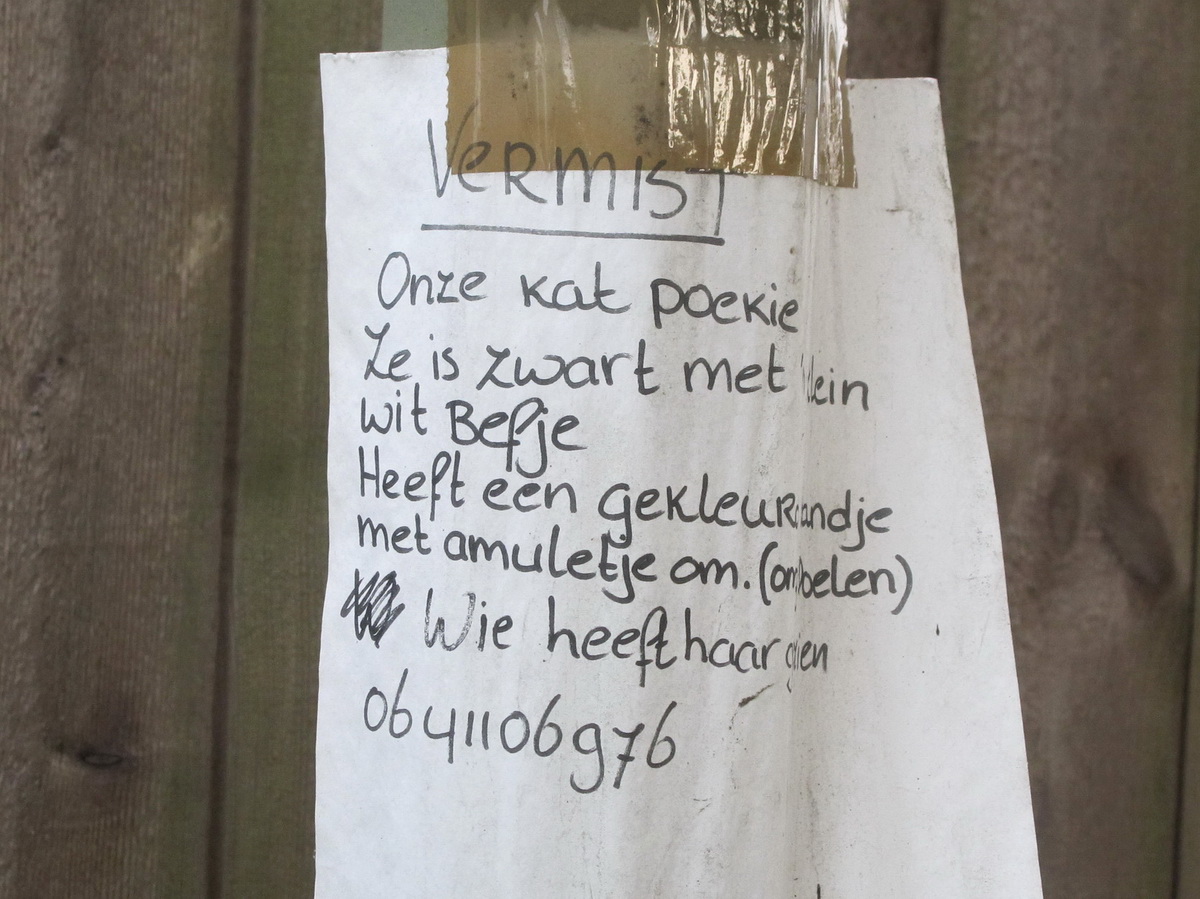 VERMIST
Onze kat poekie
Ze is zwart met
wit Befje
Heeft een
met amuletje om.
Wie heeft haar
0641106976